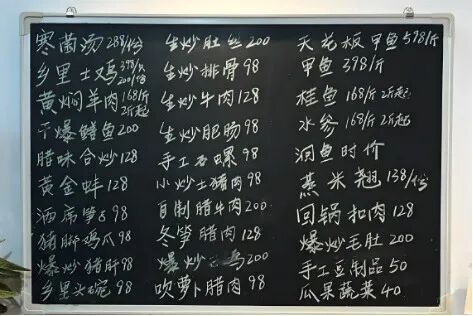 寒菌汤 288/份
乡里土鸡 398/只 200/份
黄焖羊肉 168/斤 2斤起
干爆鳝鱼 200
腊味合炒 128
黄金蚌 128
酒席笋 98
猪脚鸡爪 98
爆炒猪肝 98
乡里头碗 98
生炒肚丝 200
生炒排骨 98
生炒牛肉 128
生炒肥肠 98
手工石螺 98
小炒土猪肉 98
自制腊牛肉 200
冬笋腊肉 128
爆炒 鸡 200
吹萝卜腊肉 98
天花板甲鱼 598/斤
甲鱼 398/斤
桂鱼 168/斤 2斤起
水参 168/斤 2斤起
洄鱼时价
蒸米翘 138/份
回锅扣肉 128
爆炒毛肚 200
手工豆制品 50
瓜果蔬菜 40